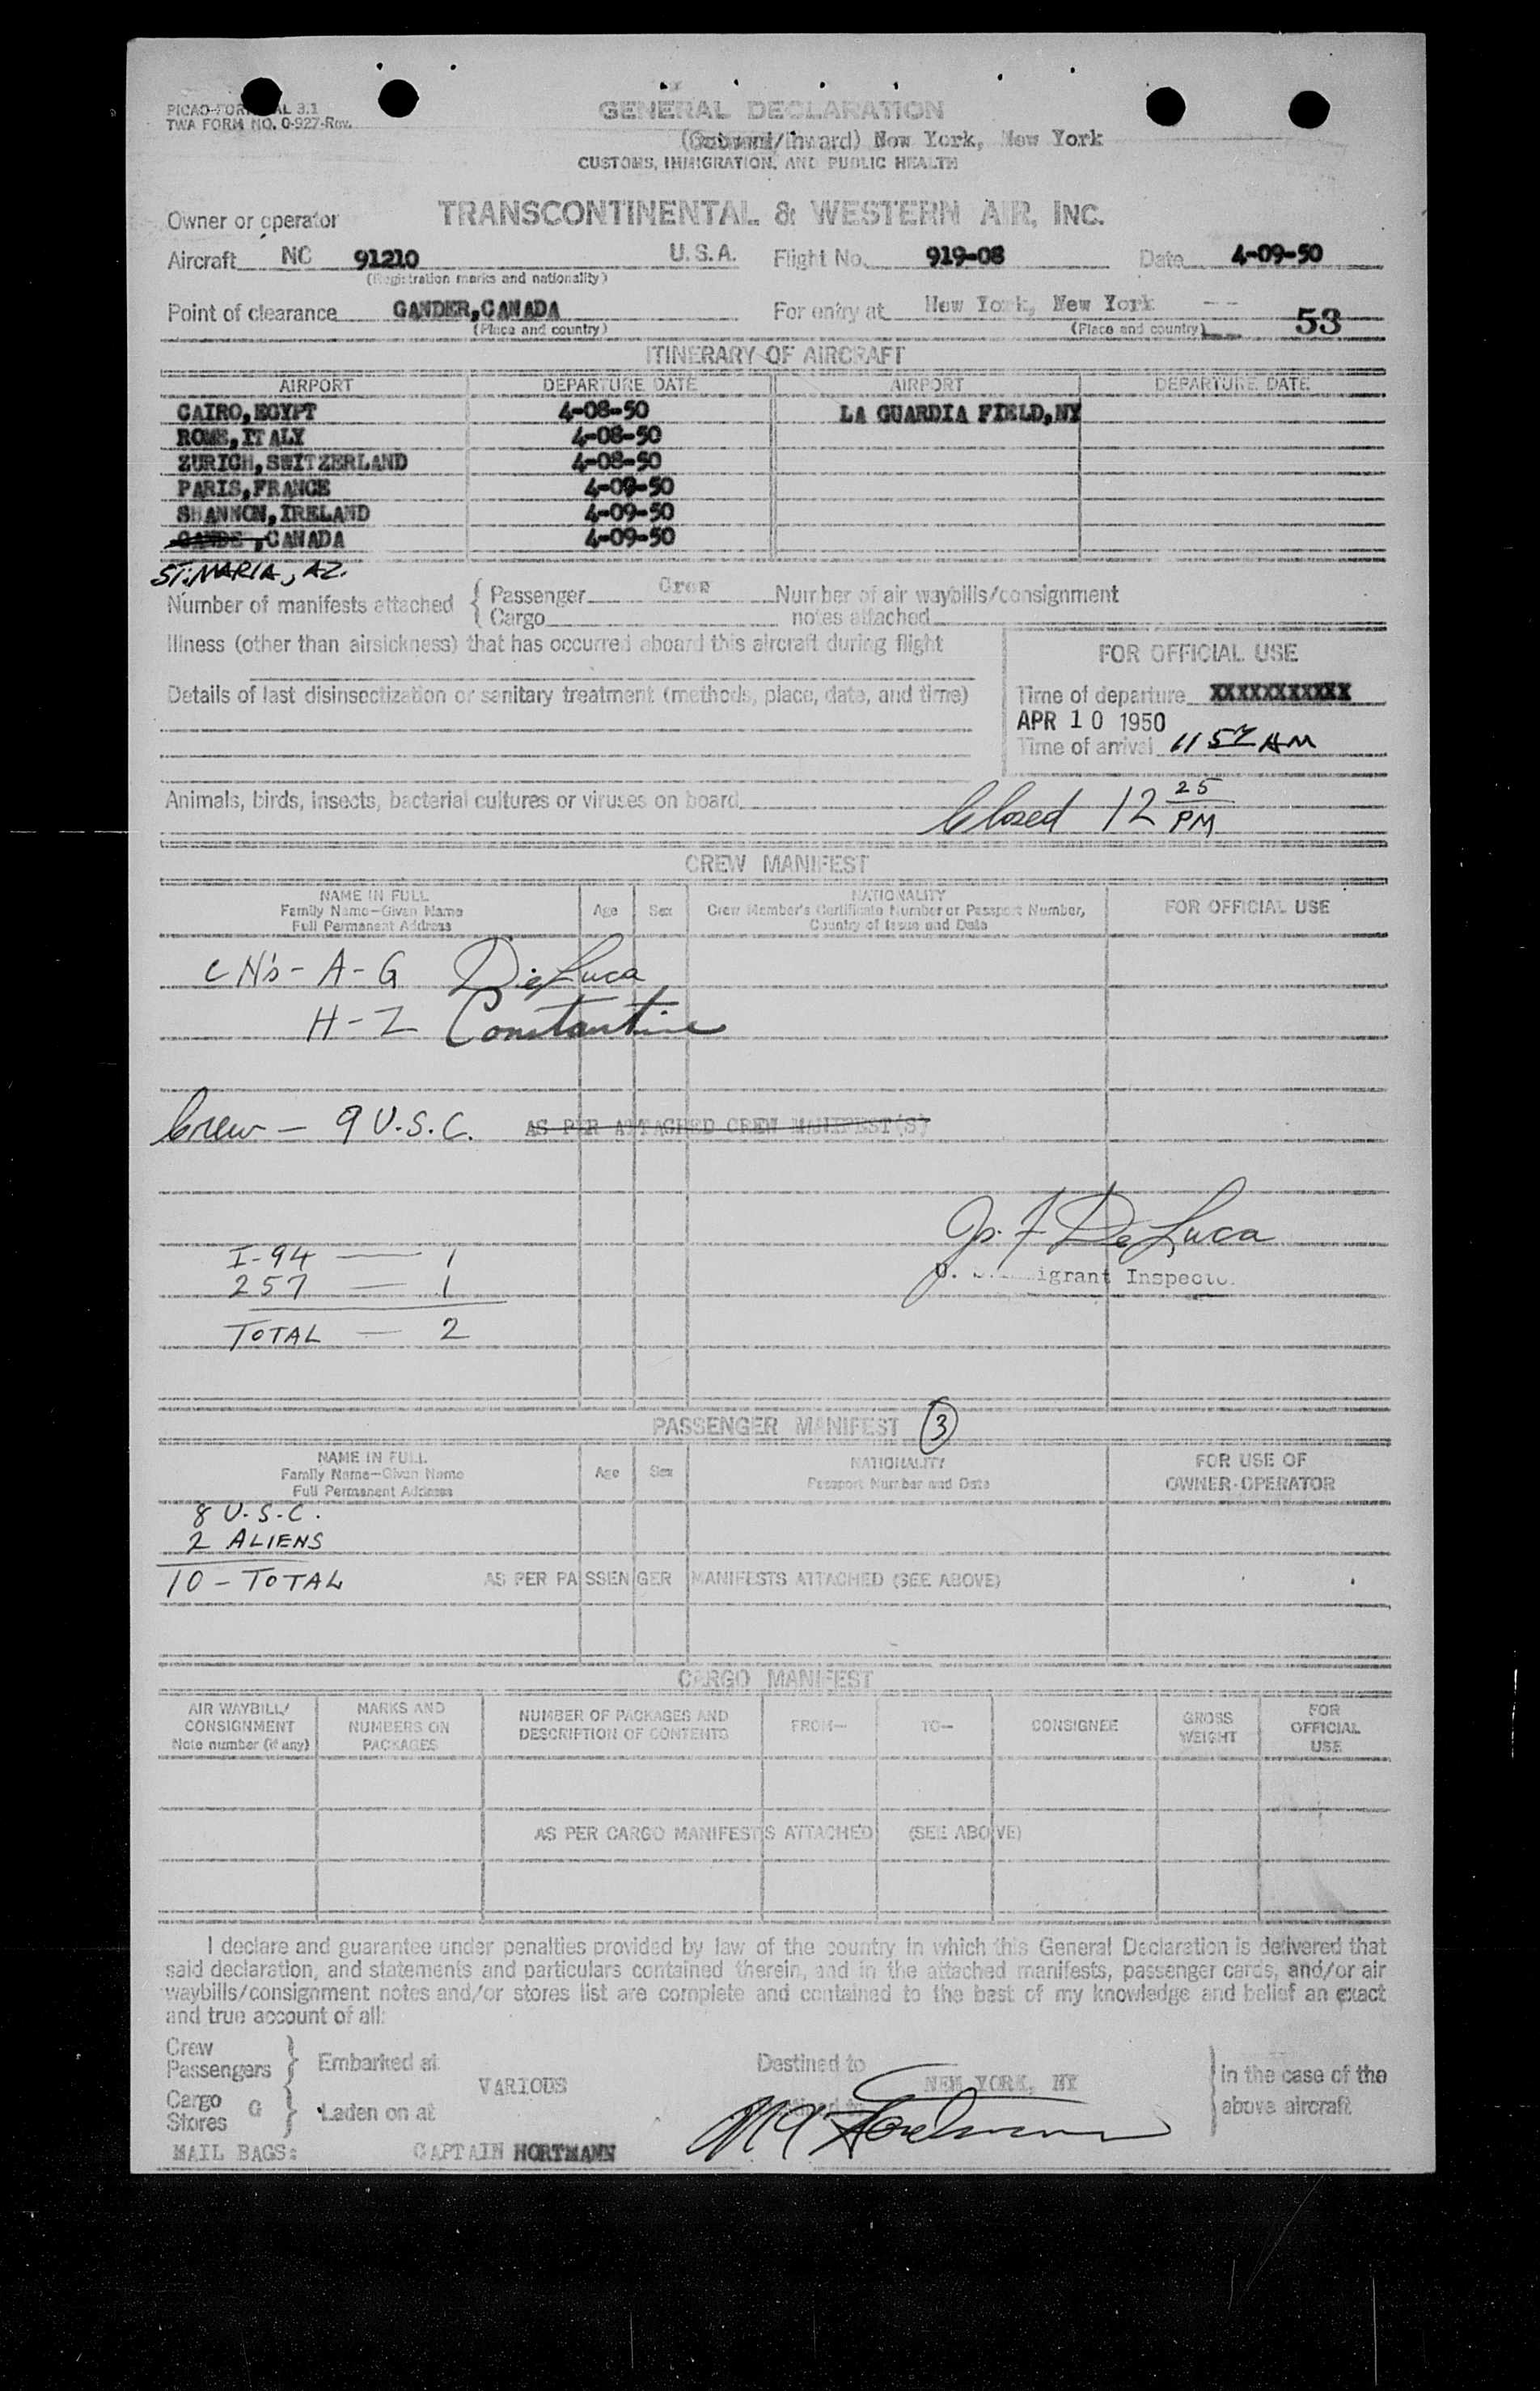 PICAO-FOR AL 3.1
TWA FORM NO. 0-927-Rev.
GENERAL DECLARATION
(Outward/Inward) New York, New York
CUSTOMS, IMMIGRATION, AND PUBLIC HEALTH
Owner or operator TRANSCONTINENTAL & WESTERN AIR, INC.
Aircraft NC 91210 U.S.A. Flight No. 919-08 Date 4-09-50
(Registration marks and nationality)
Point of clearance GANDER,CANADA For entry at New York, New York 53
(Place and country) (Place and country)
ITINERARY OF AIRCRAFT
AIRPORT DEPARTURE DATE AIRPORT DEPARTURE DATE
CAIRO,EGYPT 4-08-50 LA GUARDIA FIELD,NY
ROME,ITALY 4-08-50
ZURICH,SWITZERLAND 4-08-50
PARIS,FRANCE 4-09-50
SHANNON,IRELAND 4-09-50
GANDE ,CANADA 4-09-50
ST. MARIA, AZ.
Number of manifests attached { Passenger Crew Number of air waybills/consignment
Cargo notes attached
Illness (other than airsickness) that has occurred aboard this aircraft during flight
FOR OFFICIAL USE
Details of last disinsectization or sanitary treatment (methods, place, date, and time)
Time of departure XXXXXXXXXXX
APR 10 1950
Time of arrival 11 57 AM
Animals, birds, insects, bacterial cultures or viruses on board
Closed 12 25 PM
CREW MANIFEST
NAME IN FULL
Family Name—Given Name
Full Permanent Address
Age Sex
NATIONALITY
Crew Member's Certificate Number or Passport Number,
Country of Issue and Date
FOR OFFICIAL USE
CN's - A - G DeLuca
H - Z Constantine
Crew - 9 U.S.C. AS PER ATTACHED CREW MANIFEST(S)
DeLuca
igrant Inspecto
I-94 — 1
257 — 1
TOTAL — 2
PASSENGER MANIFEST 3
NAME IN FULL
Family Name—Given Name
Full Permanent Address
Age Sex
NATIONALITY
Passport Number and Date
FOR USE OF
OWNER-OPERATOR
8 U.S.C.
2 ALIENS
10 - TOTAL AS PER PASSENGER MANIFESTS ATTACHED (SEE ABOVE)
CARGO MANIFEST
AIR WAYBILL/
CONSIGNMENT
Note number (if any)
MARKS AND
NUMBERS ON
PACKAGES
NUMBER OF PACKAGES AND
DESCRIPTION OF CONTENTS
FROM— TO— CONSIGNEE
GROSS
WEIGHT
FOR
OFFICIAL
USE
AS PER CARGO MANIFESTS ATTACHED (SEE ABOVE)
I declare and guarantee under penalties provided by law of the country in which this General Declaration is delivered that
said declaration, and statements and particulars contained therein, and in the attached manifests, passenger cards, and/or air
waybills/consignment notes and/or stores list are complete and contained to the best of my knowledge and belief an exact
and true account of all:
Crew
Passengers } Embarked at Destined to
VARIOUS NEW YORK, NY
in the case of the
above aircraft
Cargo
Stores G } Laden on at
MAIL BAGS: CAPTAIN HORTMANN